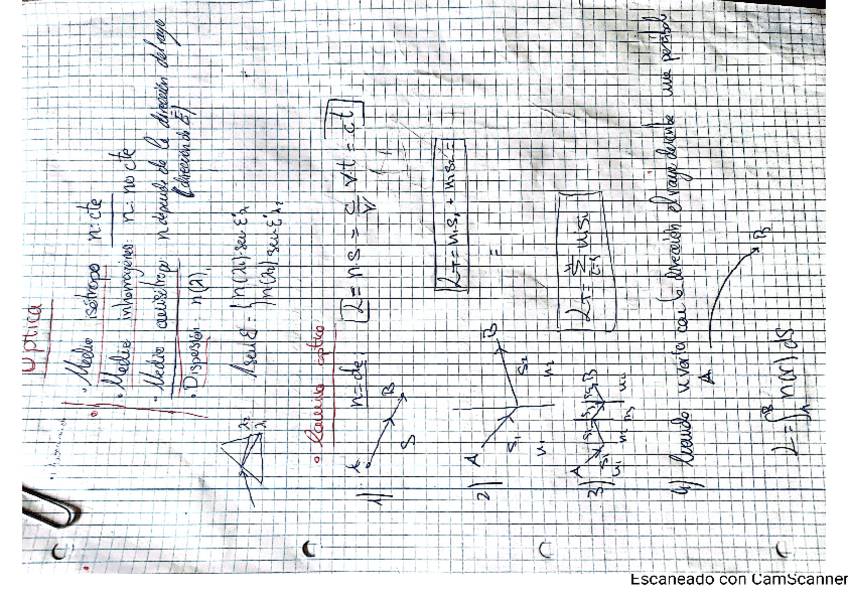 Óptica
• Medio isótropo n: cte
• Medio inhomogéneo: n: no cte
• Medio anisótropo: n depende de la dirección del rayo
(dirección de E)
• Dispersión: n(λ).
λ2
λ1
1 sen ε = { n(λ1) sen ε'λ1
n(λ2) sen ε'λ2
• Camino óptico
1) n=cte; L = n s = c/v v·t = ct
A B
S
2) A B
S1 S2
n1 n2
LT = n1s1 + n2s2 =
=
3) A B
S1
n1 n2 n3
LT = Σ i=1 nisi
4) Cuando n varía con la dirección el rayo describe una parábola
A B
L = ∫ n(r) ds
A B
Escaneado con CamScanner